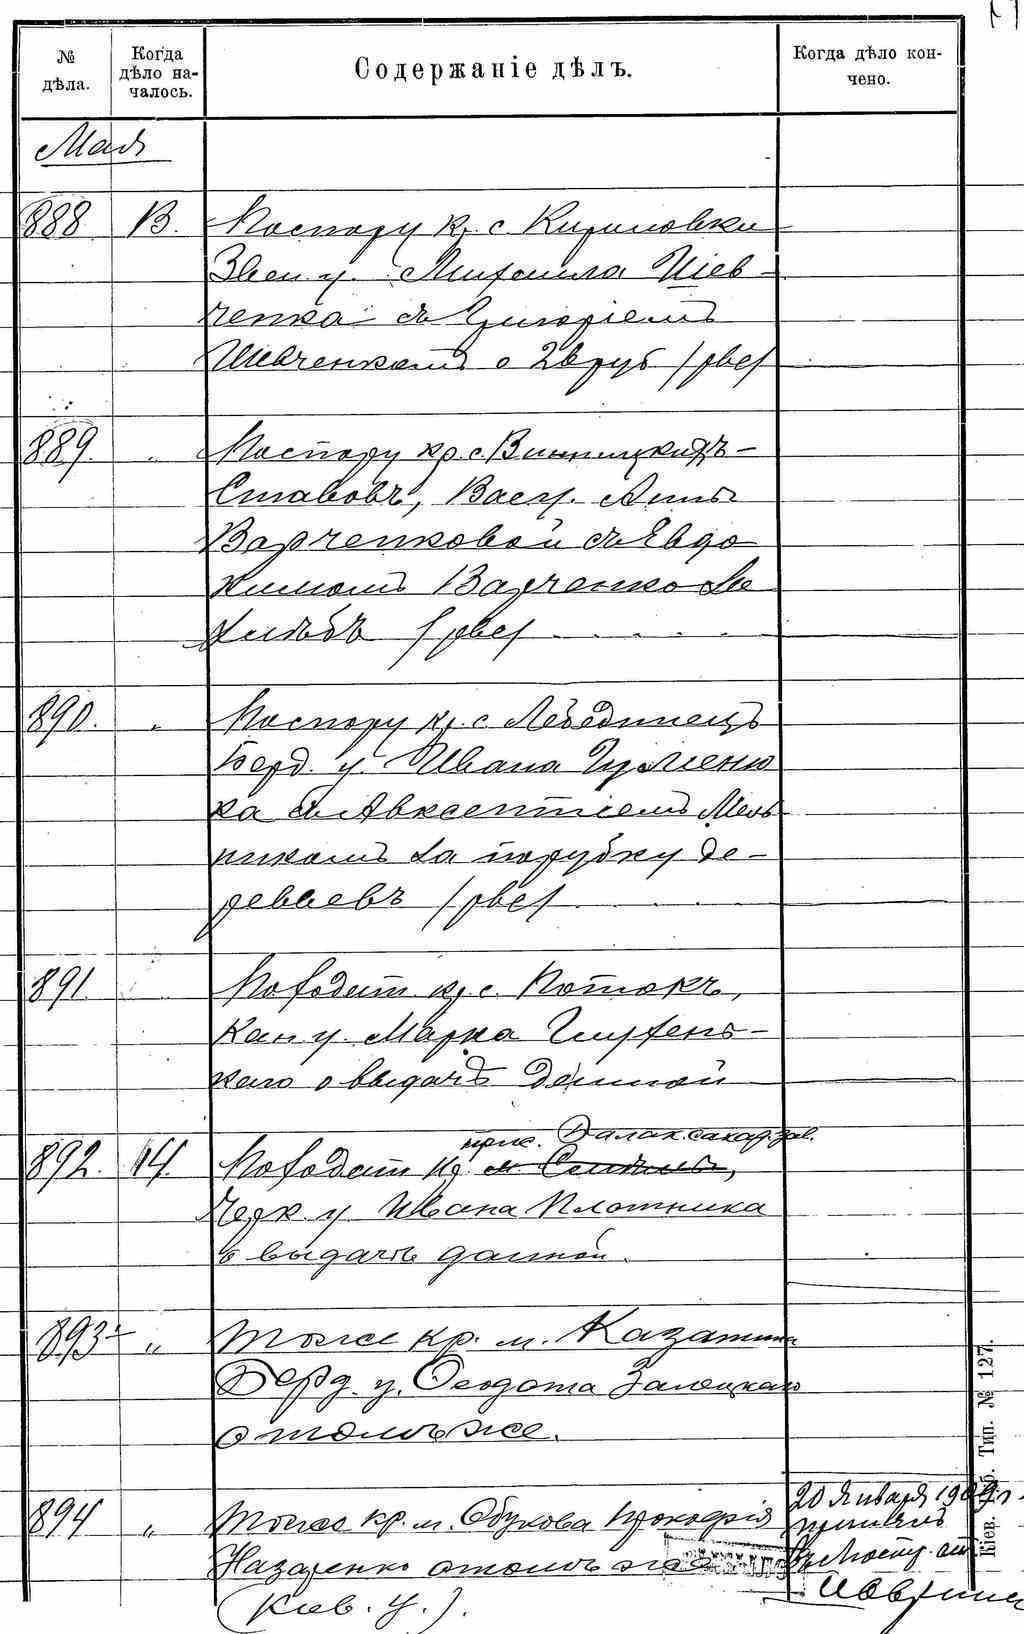 № дѣла.
Когда дѣло на-
чалось.
Содержаніе дѣлъ.
Когда дѣло кон-
чено.
Мая
888 13. По спору кр. с. Кириловки
Звен. у. Михаила Шев-
ченка съ Григоріемъ
Шевченкомъ о 28 руб /рве/
889. " По спору кр. с. Винницкихъ-
Ставовъ, Вас. у. Анны
Варченковой съ Евдо
кимомъ Варченко за
хлѣбъ /рве/
890. " По спору кр. с. Лебединецъ
Берд. у. Ивана Гуменю
ка съ Авксентіемъ Мель
никомъ за порубку де-
ревьевъ /рве/
891. По ходат. кр. с. Потокъ,
Кан. у. Марка
каго о выдачѣ данной
прис. Балак. сахар. зав.
892. 14. По ходат. кр. м.
Черк. у. Ивана Плотника
о выдачѣ данной.
893 " Тоже кр. м. Казатина
Берд. у. Ѳеодота Залецкаго
о томъ же.
894 " Тоже кр. м. Обухова Прокофія
Назаренко о томъ же
(Кіев. у.).
20 Января
Кіев. Губ. Тип. № 127.